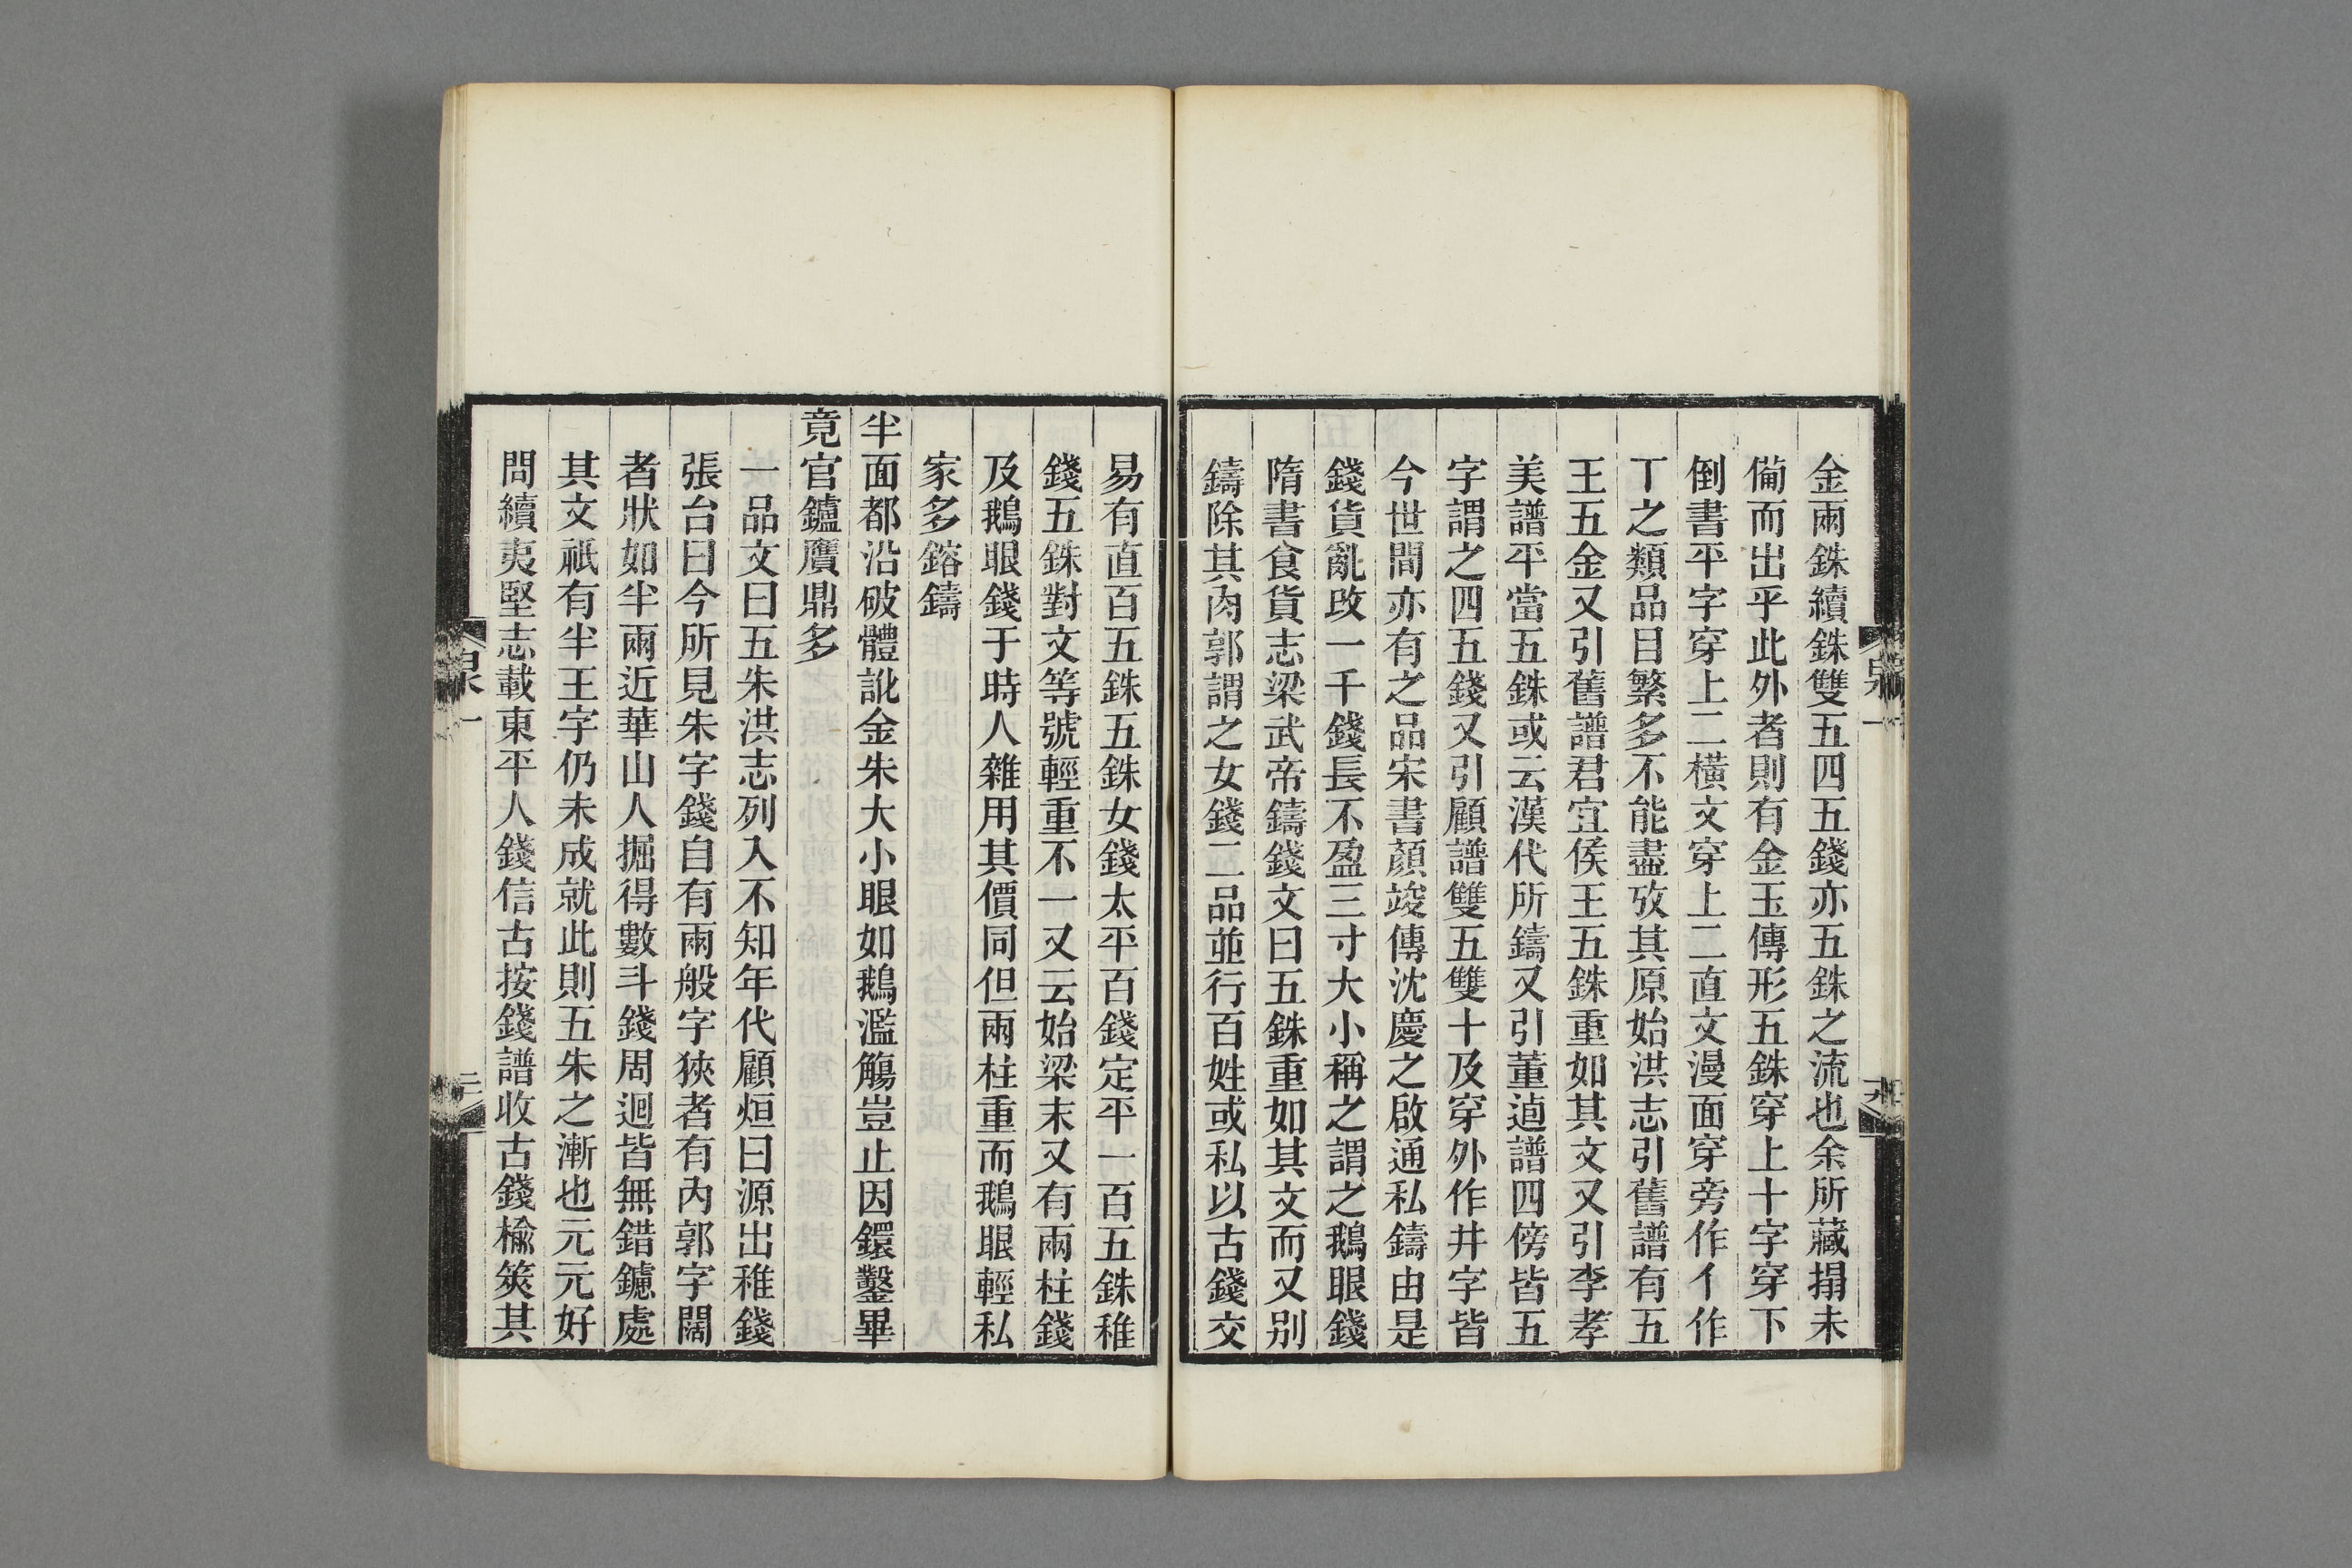 金兩銖續銖雙五四五錢亦五銖之流也余所藏搨未
備而出乎此外者則有金玉傳形五銖穿上十字穿下
倒書平字穿上二橫文穿上二直文漫面穿旁作亻作
丅之類品目繁多不能盡攷其原始洪志引舊譜有五
王五金又引舊譜君宜侯王五銖重如其文又引李孝
美譜平當五銖或云漢代所鑄又引董逌譜四傍皆五
字謂之四五錢又引顧譜雙五雙十及穿外作井字皆
今世間亦有之品宋書顏竣傳沈慶之啟通私鑄由是
錢貨亂改一千錢長不盈三寸大小稱之謂之鵝眼錢
隋書食貨志梁武帝鑄錢文曰五銖重如其文而又別
鑄除其肉郭謂之女錢二品並行百姓或私以古錢交
易有直百五銖五銖女錢太平百錢定平一百五銖稚
錢五銖對文等號輕重不一又云始梁末又有兩柱錢
及鵝眼錢于時人雜用其價同但兩柱重而鵝眼輕私
家多鎔鑄
半面都沿破體訛金朱大小眼如鵝濫觴豈止因鐶鑿畢
竟官鑪贗鼎多
一品文曰五朱洪志列入不知年代顧烜曰源出稚錢
張台曰今所見朱字錢自有兩般字狹者有內郭字闊
者狀如半兩近華山人掘得數斗錢周迴皆無錯鑢處
其文祇有半王字仍未成就此則五朱之漸也元元好
問續夷堅志載東平人錢信古按錢譜收古錢榆筴其
泉一
泉一